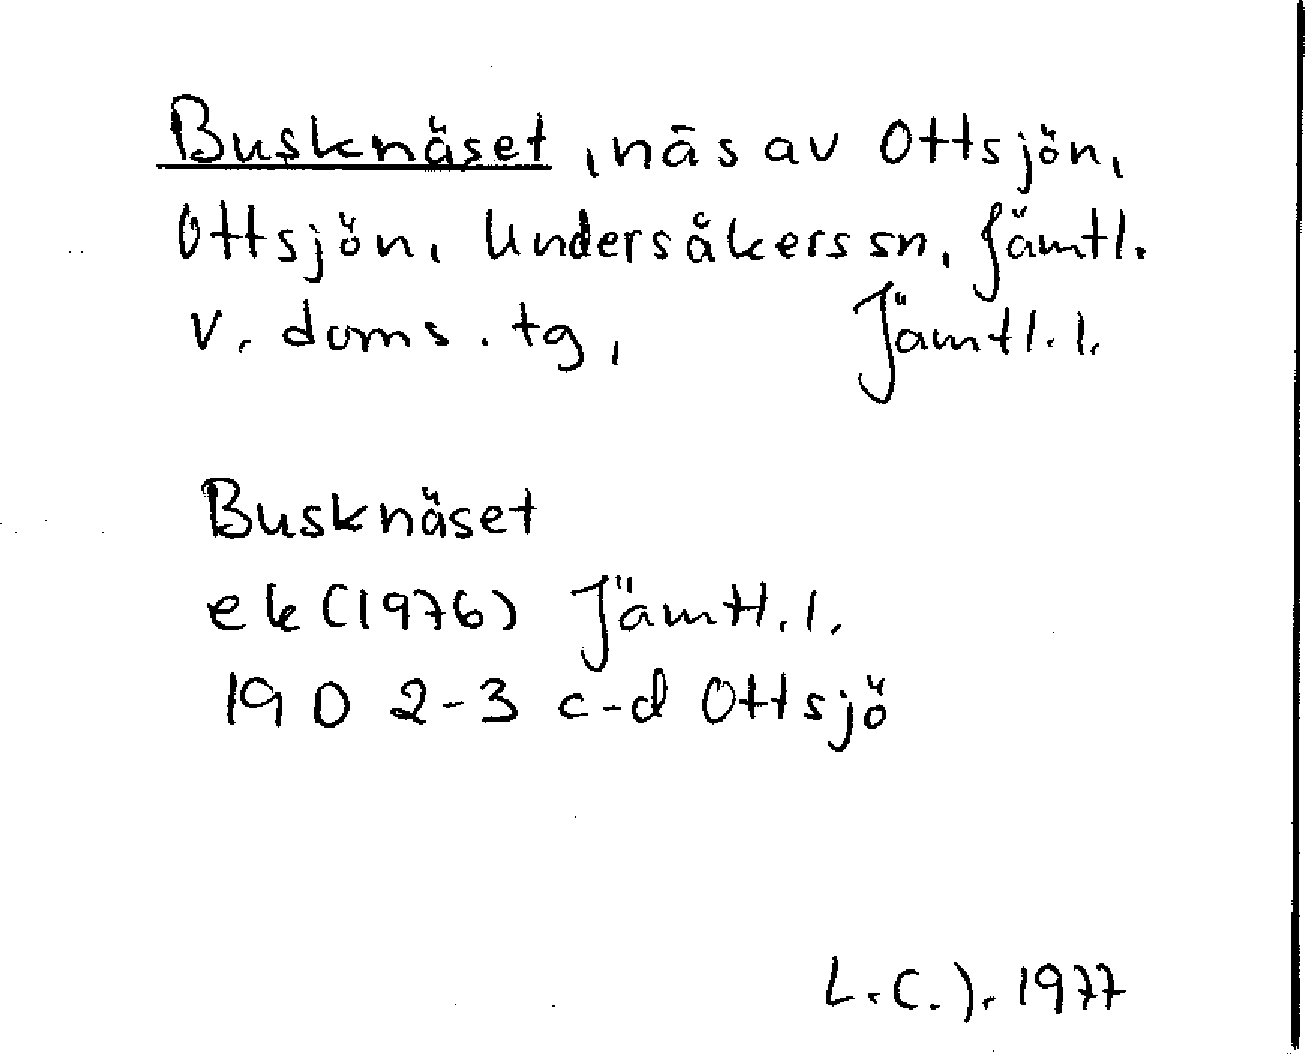 Busknäset, näs av Ottsjön,
Ottsjön, Undersåkers sn, Jämtl.
v. doms. tg, Jämtl. l.
Busknäset
ek (1976) Jämtl. l.
19 D 2-3 c-d Ottsjö
L.C.J. 1977